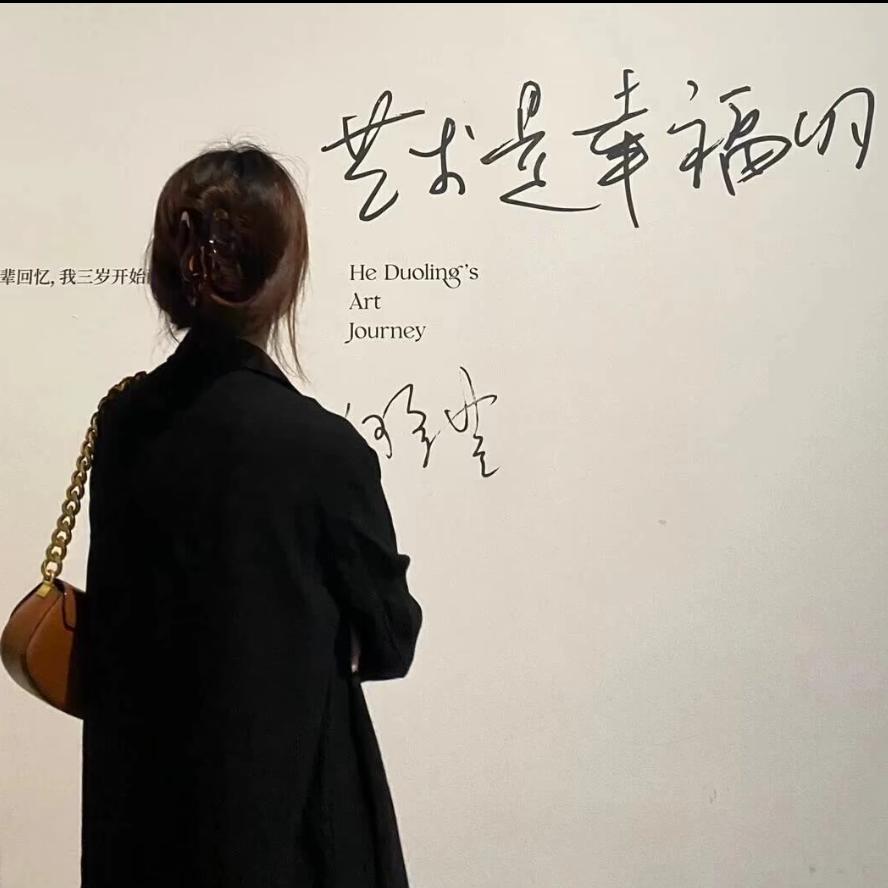 艺术是幸福的
辈回忆, 我三岁开始
He Duoling's
Art
Journey